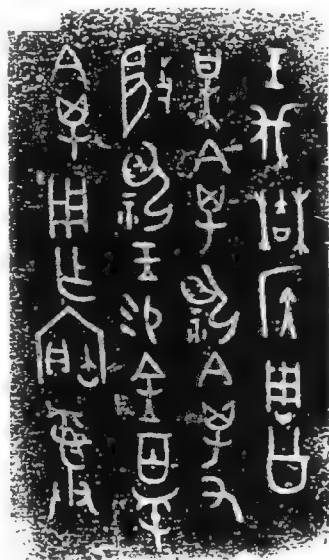 王伐𣐺侯周公
某禽祝禽又
敐祝王易金百寽
禽用乍寶彝